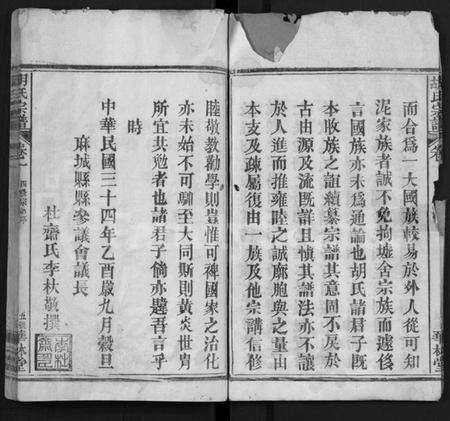 而合爲一大國族較易於外人從可知
泥家族者誠不免拘墟舍宗族而遽侈
言國族亦未爲通論也胡氏諸君子旣
本收族之誼續纂宗譜其意固不戾於
古由源及流旣詳且愼其譜法亦不讓
於人進而推雍睦之誠廓胞與之量由
本支及疎屬復由一族及他宗講信修
睦敬敎勸學則
惟可裨國家之治化
亦未始不可馴至大同斯則黃炎世胄
所宜共勉者也諸君子倘亦韙吾言乎
時
中華民國三十四年乙酉歲九月穀旦
麻城縣縣參議會議長
杜齋氏李
敬撰
氏宗譜
卷
胡氏宗譜
卷一
林堂